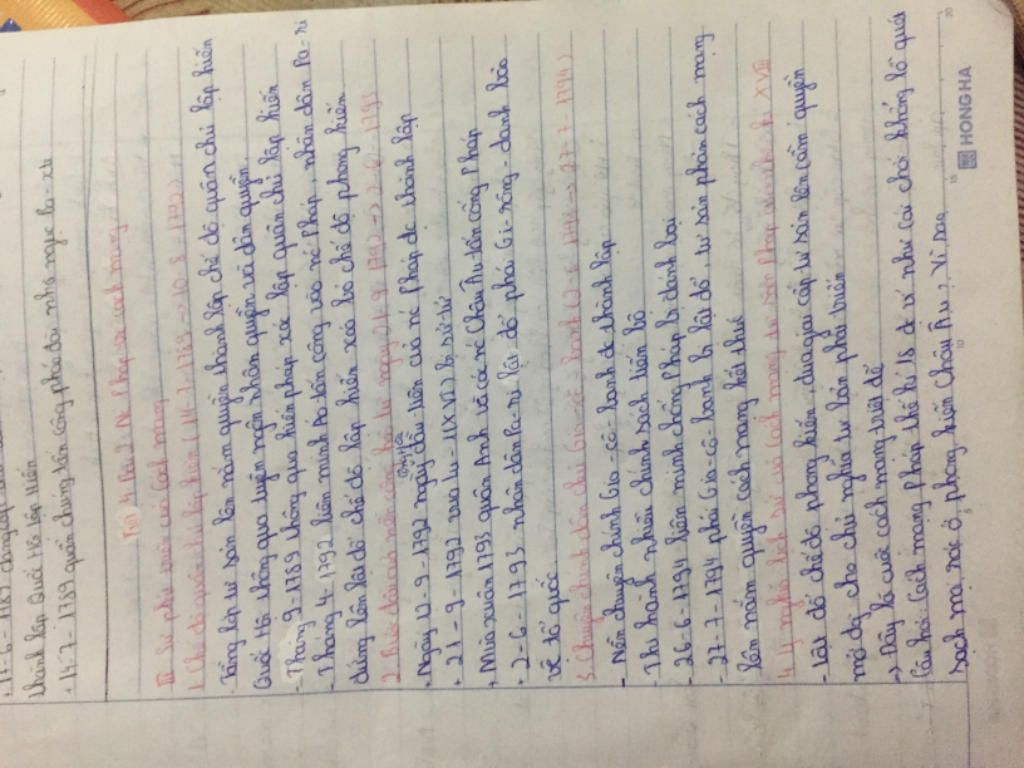 thành lập Quốc Hội lập Hiến
- 14-7-1789 quần chúng tấn công pháo đài nhà ngục Ba-xti
III Sự phát triển của Cách mạng
1. Chế độ quân chủ lập hiến (14-7-1789 -> 10-8-1792)
- Tầng lớp tư sản lên nắm quyền thành lập chế độ quân chủ lập hiến
Quốc Hội thông qua tuyên ngôn nhân quyền và dân quyền.
- Tháng 9-1789 thông qua hiến pháp xác lập quân chủ lập hiến
- Tháng 4-1792 liên minh Áo tấn công vào nc Pháp, nhân dân Pa-ri
đứng lên lật đổ chế độ lập hiến xoá bỏ chế độ phong kiến.
2. Bước đầu của nền cộng hoà từ ngày 21-9-1792 -> 2-6-1793
- Ngày 12-9-1792 cộng hoà đầu tiên của nc Pháp đc thành lập
- 21-9-1792 vua lu-i (XVI) bị xử tử
- Mùa xuân 1793 quân Anh và các nc Châu Âu tấn công Pháp
- 2-6-1793 nhân dân Pa-ri lật đổ phái Gi-rông-đanh bảo
vệ tổ quốc.
3. Chuyên chính dân chủ Gia-cô-banh (2-6-1793 -> 27-7-1794)
- Nền chuyên chính Gia-cô-banh đc thành lập
- Thi hành nhiều chính sách tiến bộ
- 26-6-1794 liên minh chống Pháp bị đánh bại
- 27-7-1794 phái Gia-cô-banh bị lật đổ, tư sản phản cách mạng
lên nắm quyền cách mạng kết thúc
4. Ý nghĩa lịch sử của Cách mạng tư sản Pháp cuối thế kỉ XVIII
- Lật đổ chế độ phong kiến đưa giai cấp tư sản lên cầm quyền
mở đg cho chủ nghĩa tư bản phát triển
-> Đây là cuộc cách mạng triệt để
Câu hỏi: Cách mạng Pháp thế kỉ 18 đc ví như cái chổi khổng lồ quét
sạch mọi rác ở phong kiến Châu Âu, Vì sao
HONG HA